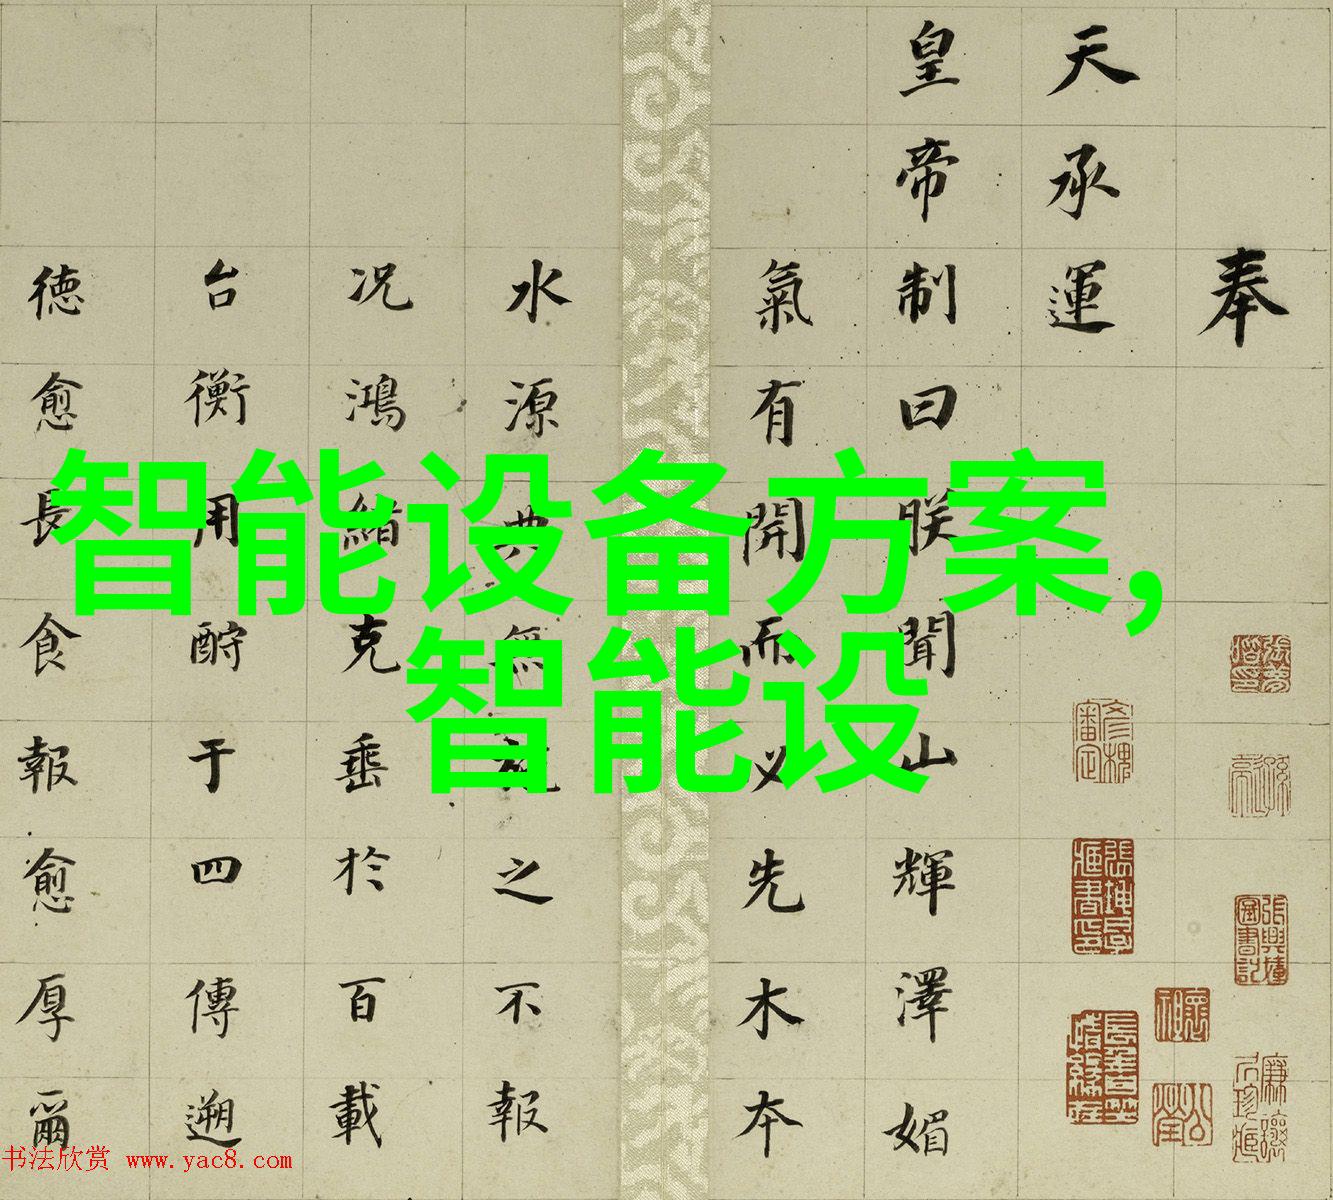 奉
天承運
皇帝制曰朕聞山輝澤媚
氣有開而必先木本
水源典無之不報
况鴻緒克垂於百載
台衡用酧于四傳遡
德愈長食報愈厚爾
智能设备方案,
智能设
书法欣赏 www.yac8.com